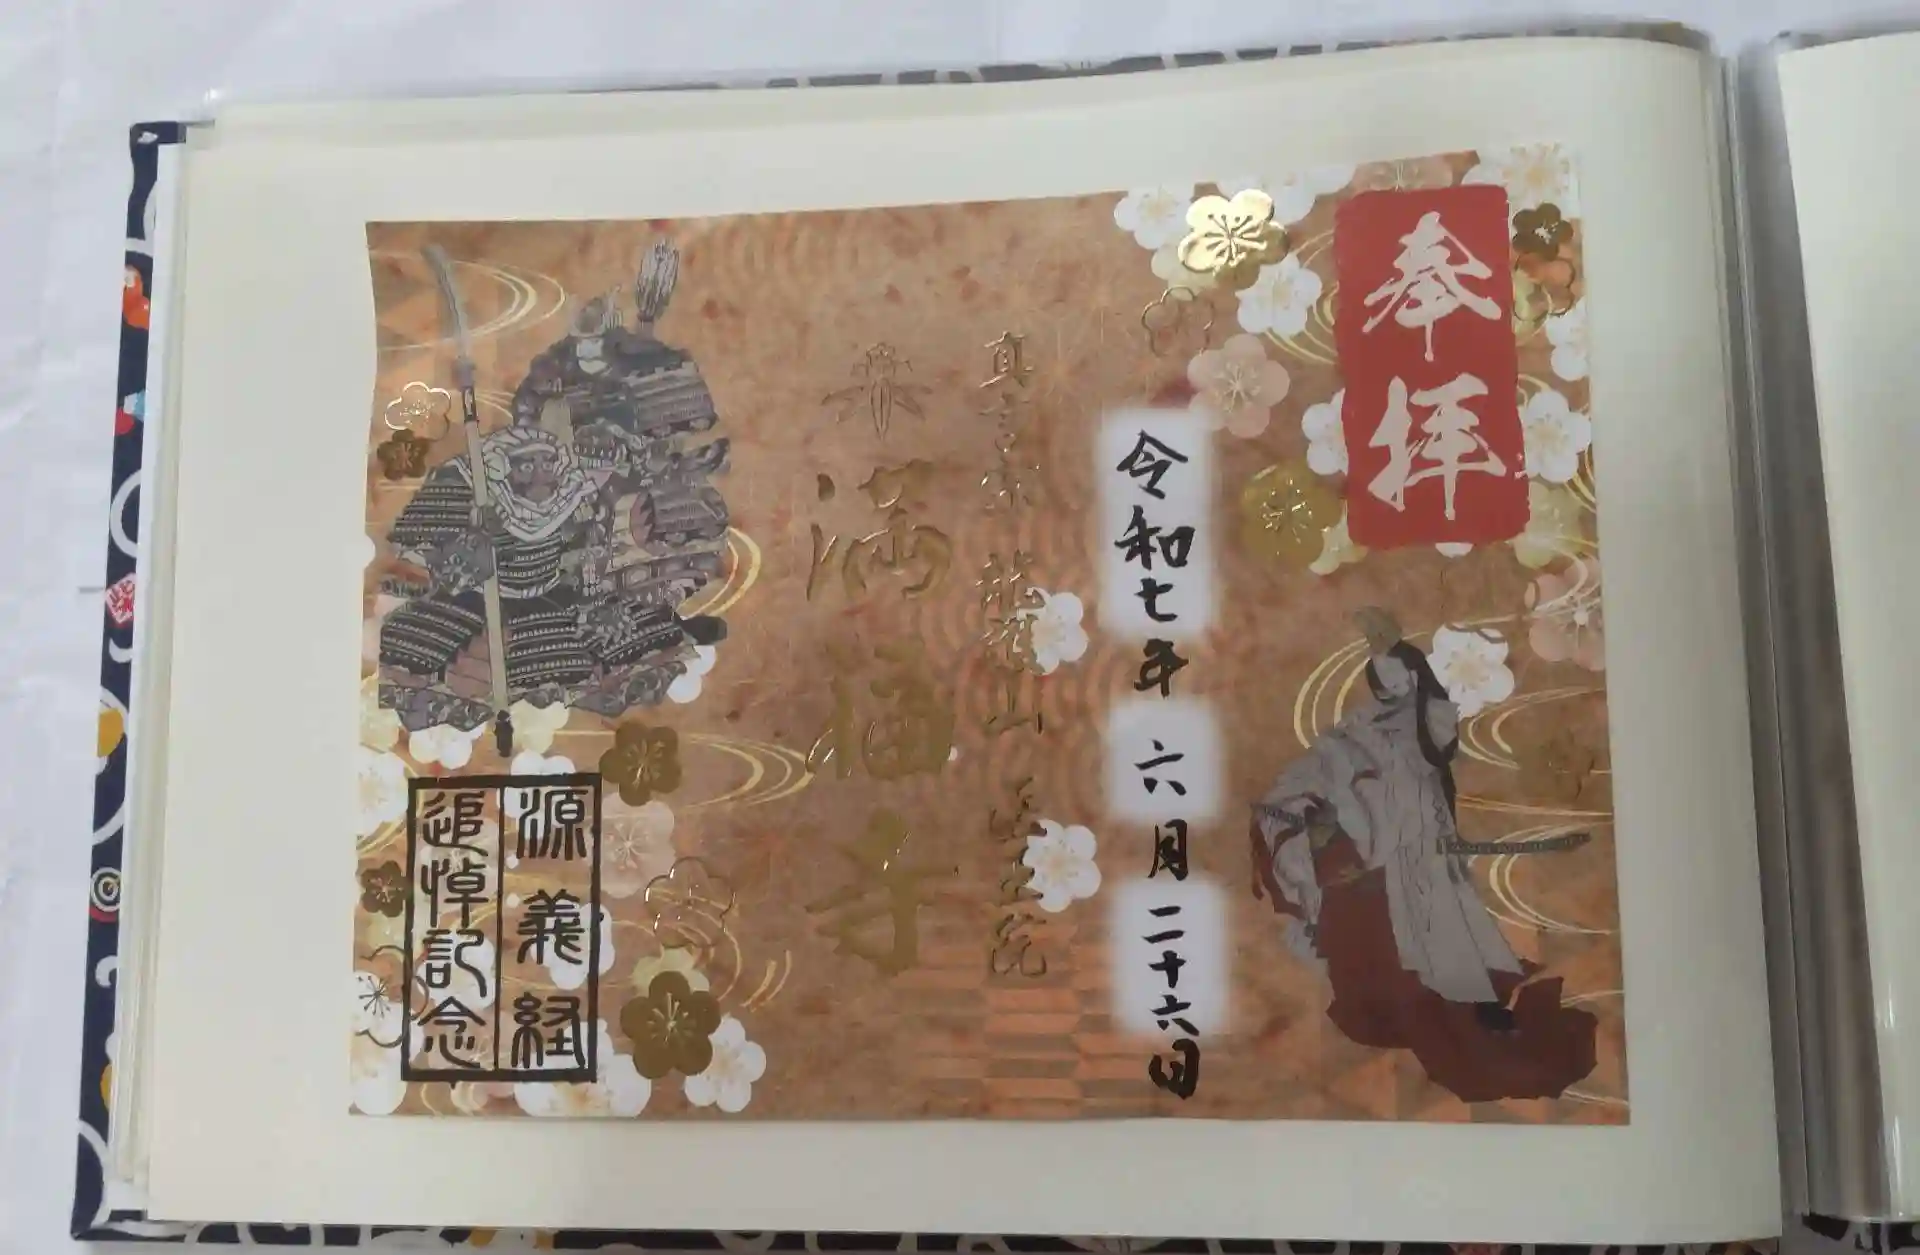 奉拝
令和七年 六月 二十六日
真言宗 龍護山 医王院
満福寺
源義経
追悼記念